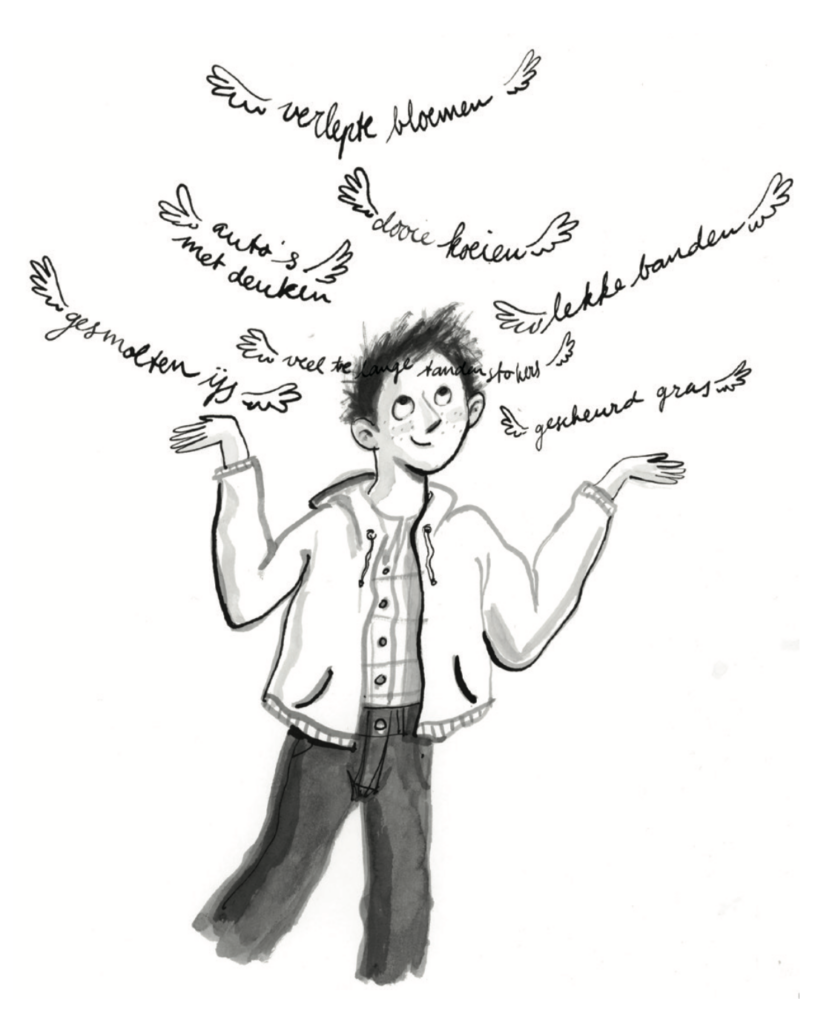 verlepte bloemen
dooie koeien
auto's
met deuken
lekke banden
gesmolten ijs
veel te lange tandenstokers
gescheurd gras